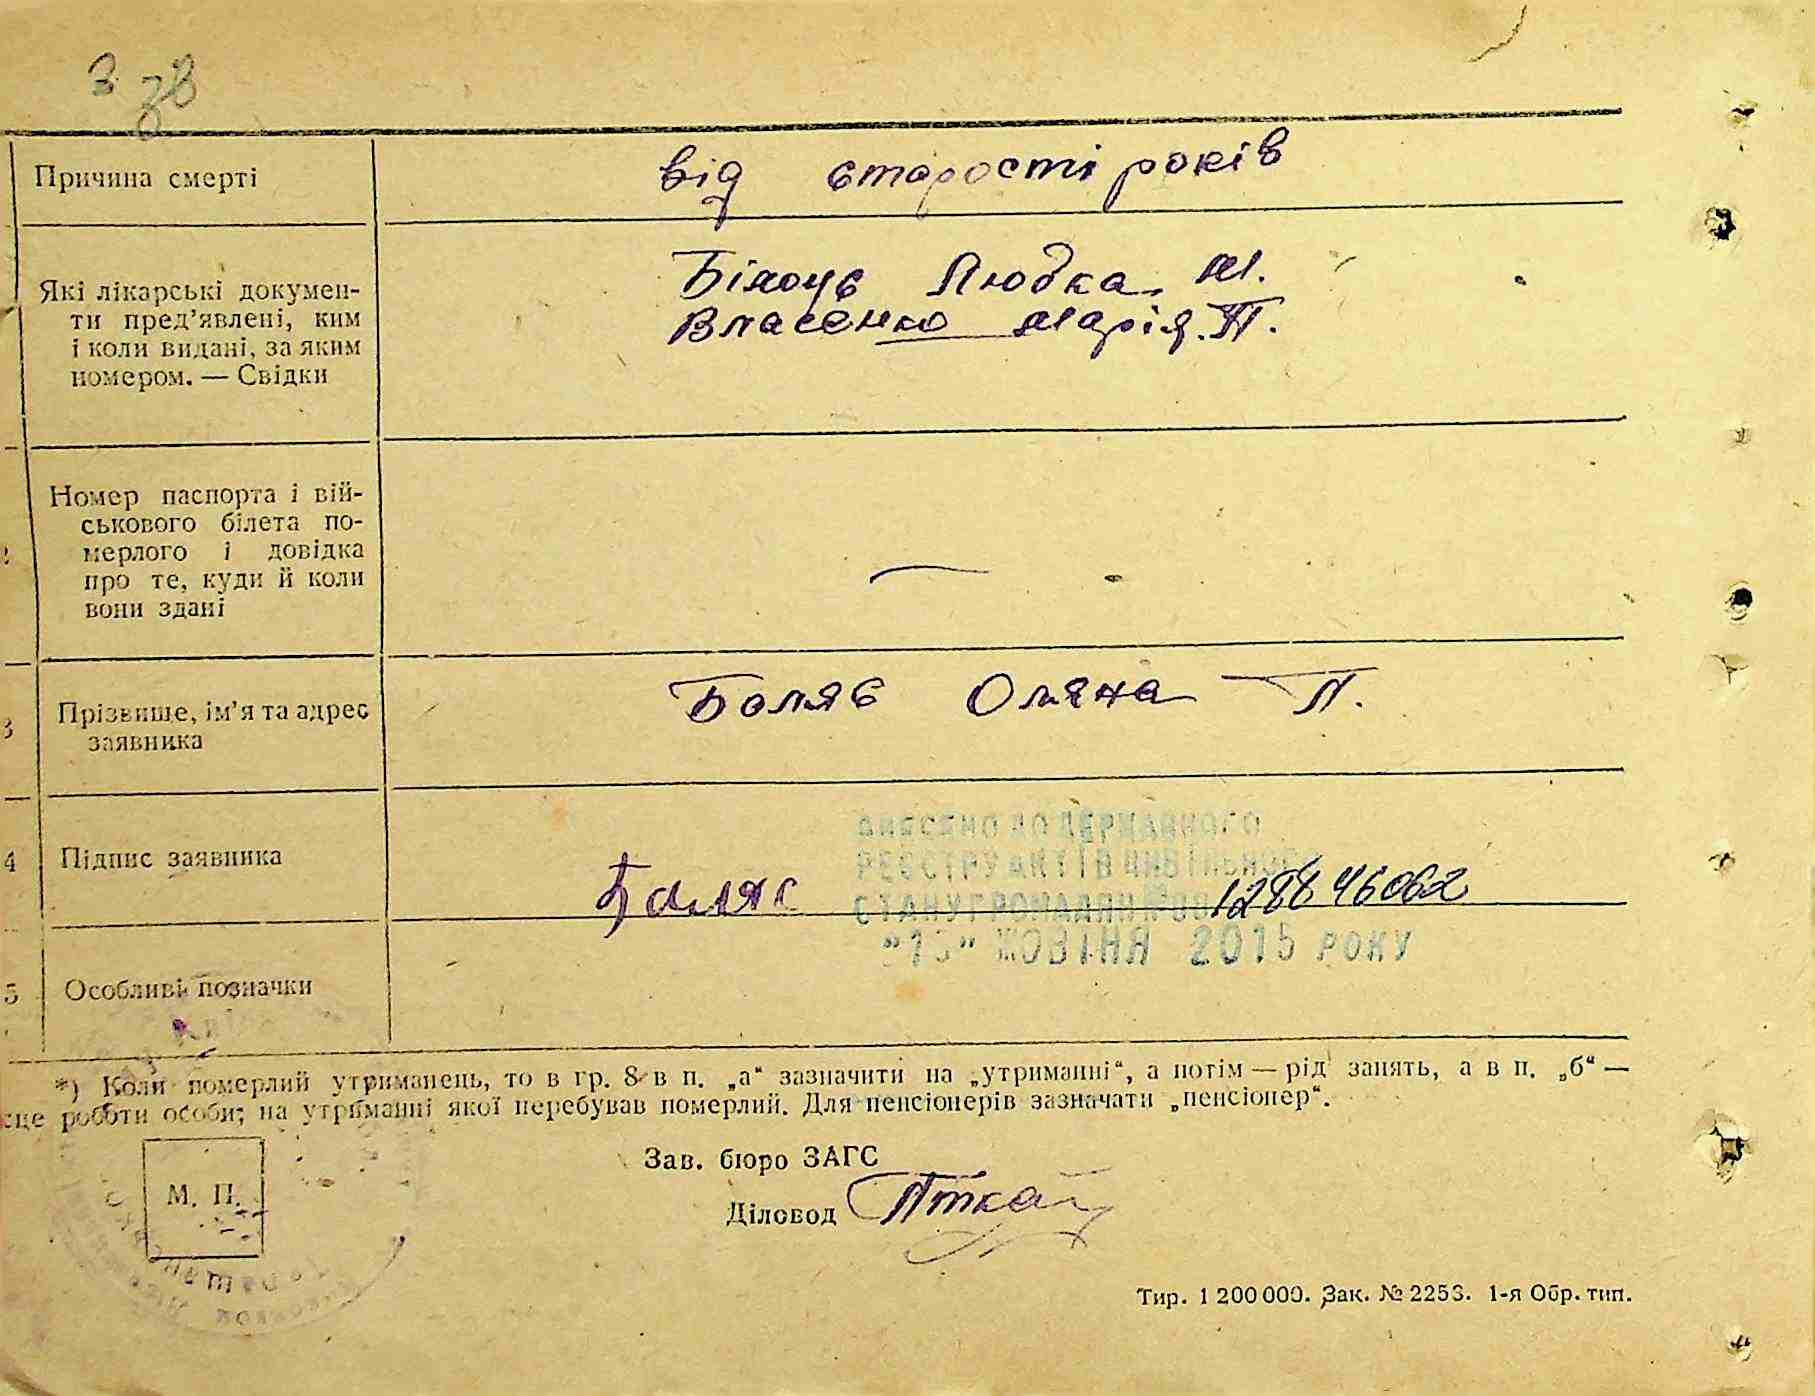 З
Причина смерті
від старості років
Які лікарські докумен-
ти пред’явлені, ким
і коли видані, за яким
номером. — Свідки
Білоус Любка М.
Власенко Марія. П.
Номер паспорта і вій-
ськового білета по-
мерлого і довідка
про те, куди й коли
вони здані
—
3
Прізвище, ім’я та адрес
заявника
Боляс Оляна П.
4
Підпис заявника
Боляс
ВНЕСЕНО ДО ДЕРЖАВНОГО
РЕЄСТРУ АКТІВ ЦИВІЛЬНОГО
СТАНУ ГРОМАДЯН № 00128846062
ЖОВТНЯ 2015 РОКУ
5
Особливі позначки
*) Коли померлий утриманець, то в гр. 8 в п. „а“ зазначити на „утриманні“, а потім — рід занять, а в п. „б“ —
сце роботи особи; на утриманні якої перебував померлий. Для пенсіонерів зазначати „пенсіонер“.
Зав. бюро ЗАГС
М. П.
Діловод
Тир. 1 200 000. Зак. № 2253. 1-я Обр. тип.